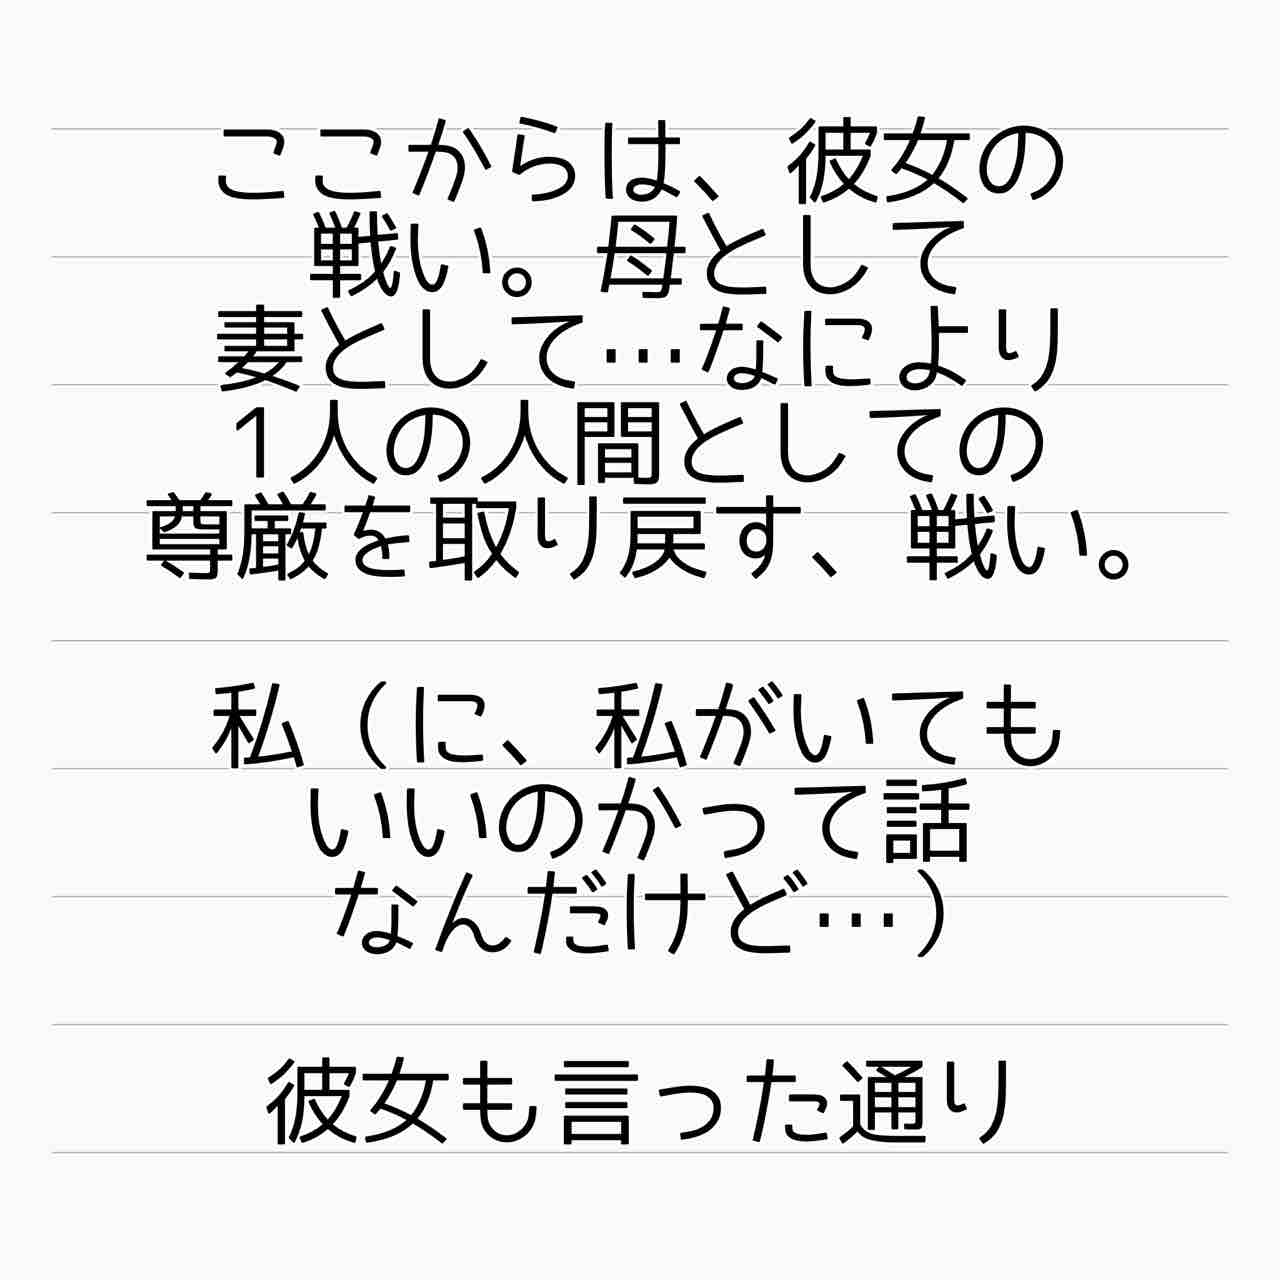 ここからは、彼女の
戦い。母として
妻として…なにより
1人の人間としての
尊厳を取り戻す、戦い。
私（に、私がいても
いいのかって話
なんだけど…）
彼女も言った通り